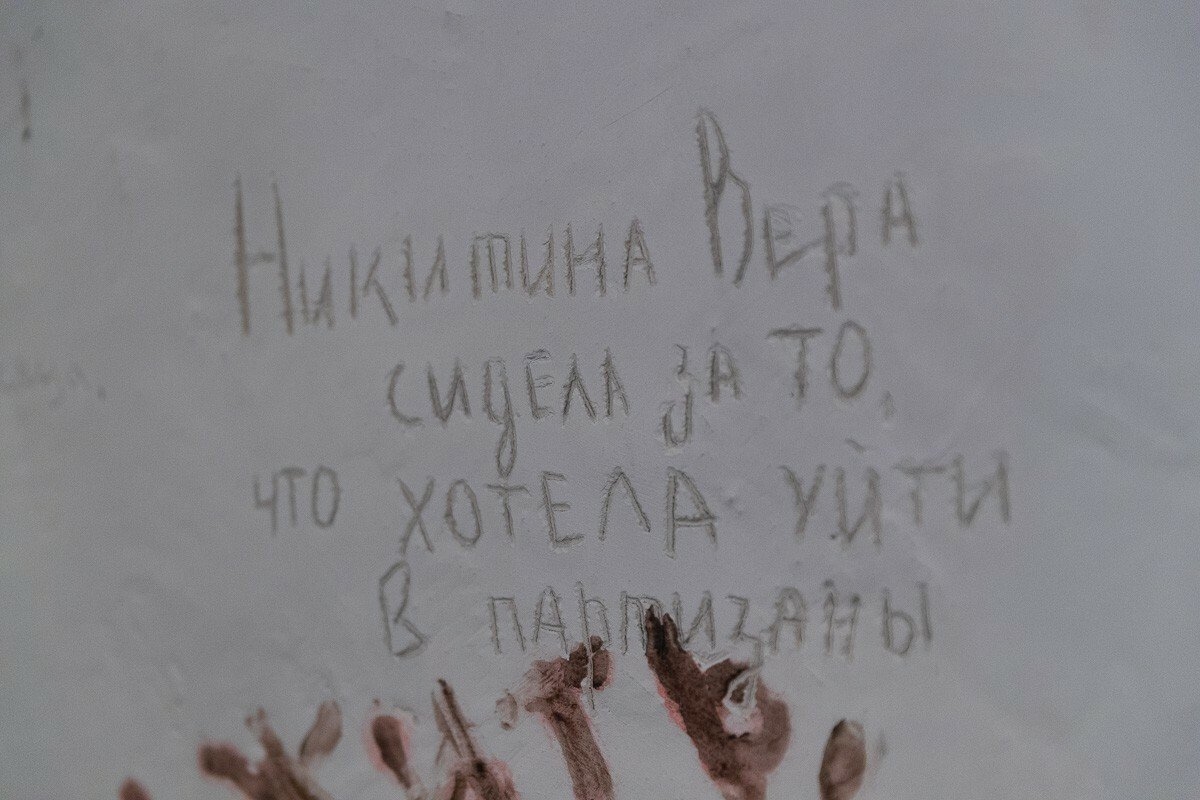 Никитина Вера
сидела за то,
что хотела уйти
в партизаны